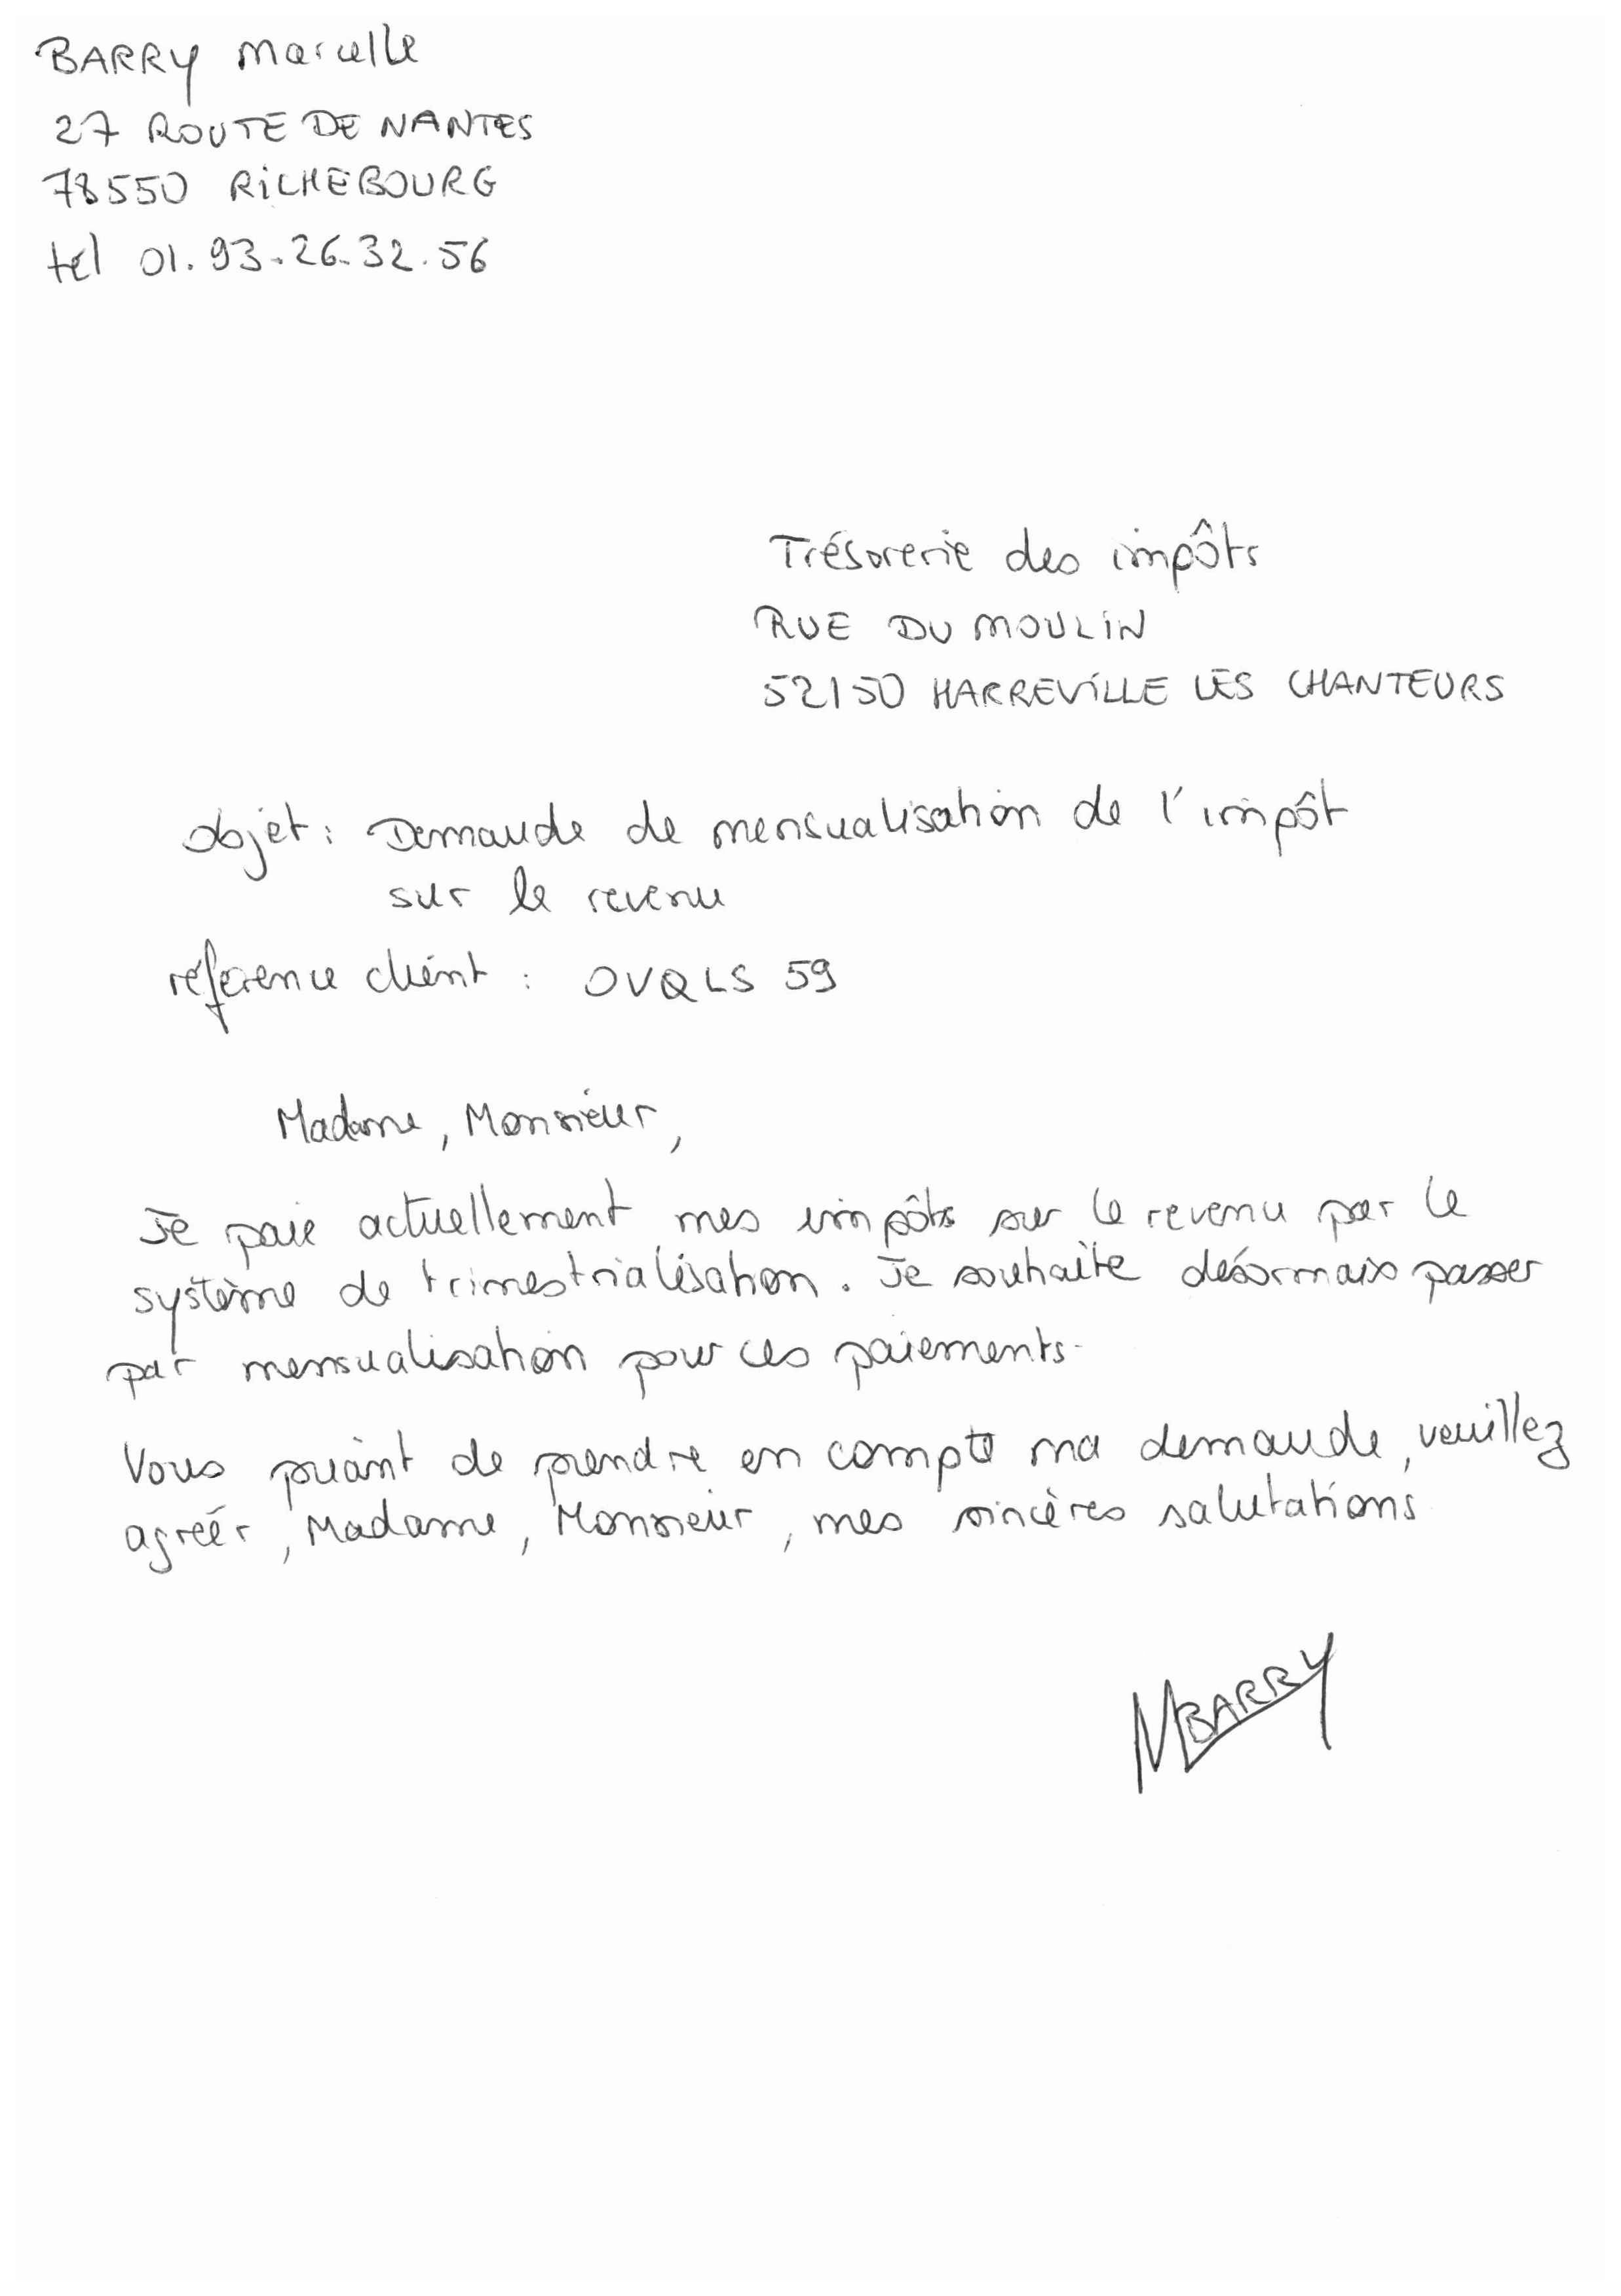 BARRY Marcelle
27 ROUTE DE NANTES
78550 RICHEBOURG
tél 01.93.26.32.56
Trésorerie des impôts
RUE DU MOULIN
52150 HARREVILLE LES CHANTEURS
Objet : Demande de mensualisation de l'impôt
sur le revenu
référence client : OVQLS 59
Madame, Monsieur,
Je paie actuellement mes impôts sur le revenu par le
système de trimestrialisation. Je souhaite désormais passer
par mensualisation pour ces paiements.
Vous priant de prendre en compte ma demande, veuillez
agréer, Madame, Monsieur, mes sincères salutations
MBARRY